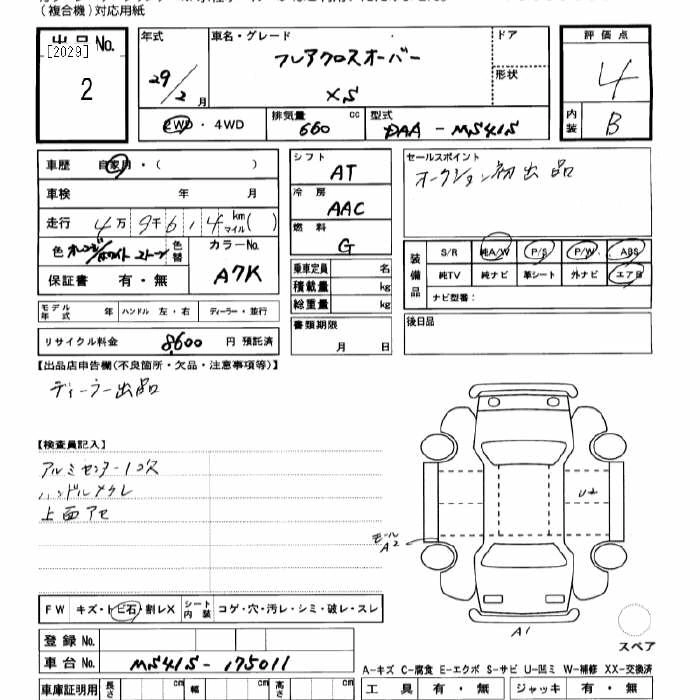 (複合機)対応用紙
出品No.
[2029]
2
年式
29/2月
車名・グレード
フレアクロスオーバー
XS
ドア
形状
評価点
4
内装
B
2WD・4WD
排気量
660 cc
型式
DAA-MS41S
車歴 自家用・( )
車検 年 月
走行 4万9千6,4 km マイル( )
色 オレンジ/ホワイト2トーン 色替
カラーNo.
A7K
保証書 有・無
シフト
AT
冷房
AAC
燃料
G
乗車定員 名
積載量 kg
総重量 kg
書類期限
月 日
セールスポイント
オークション初出品
装備品
S/R 純A/W P/S P/W ABS
純TV 純ナビ 革シート 外ナビ エアB
ナビ型番:
後日品
モデル年式 年 ハンドル 左・右 ディーラー・並行
リサイクル料金 8,600 円 預託済
【出品店申告欄(不良箇所・欠品・注意事項等)】
ディーラー出品
【検査員記入】
アルミセンター1コ欠
ハンドルメクレ
上面アセ
U2
モールA2
A1
スペア
FW キズ・トビ石・割レX シート内装 コゲ・穴・汚レ・シミ・破レ・スレ
登録No.
車台No. MS41S-175011
A-キズ C-腐食 E-エクボ S-サビ U-凹ミ W-補修 XX-交換済
車庫証明用 長さ cm 幅 cm 高さ cm
工具 有・無 ジャッキ 有・無